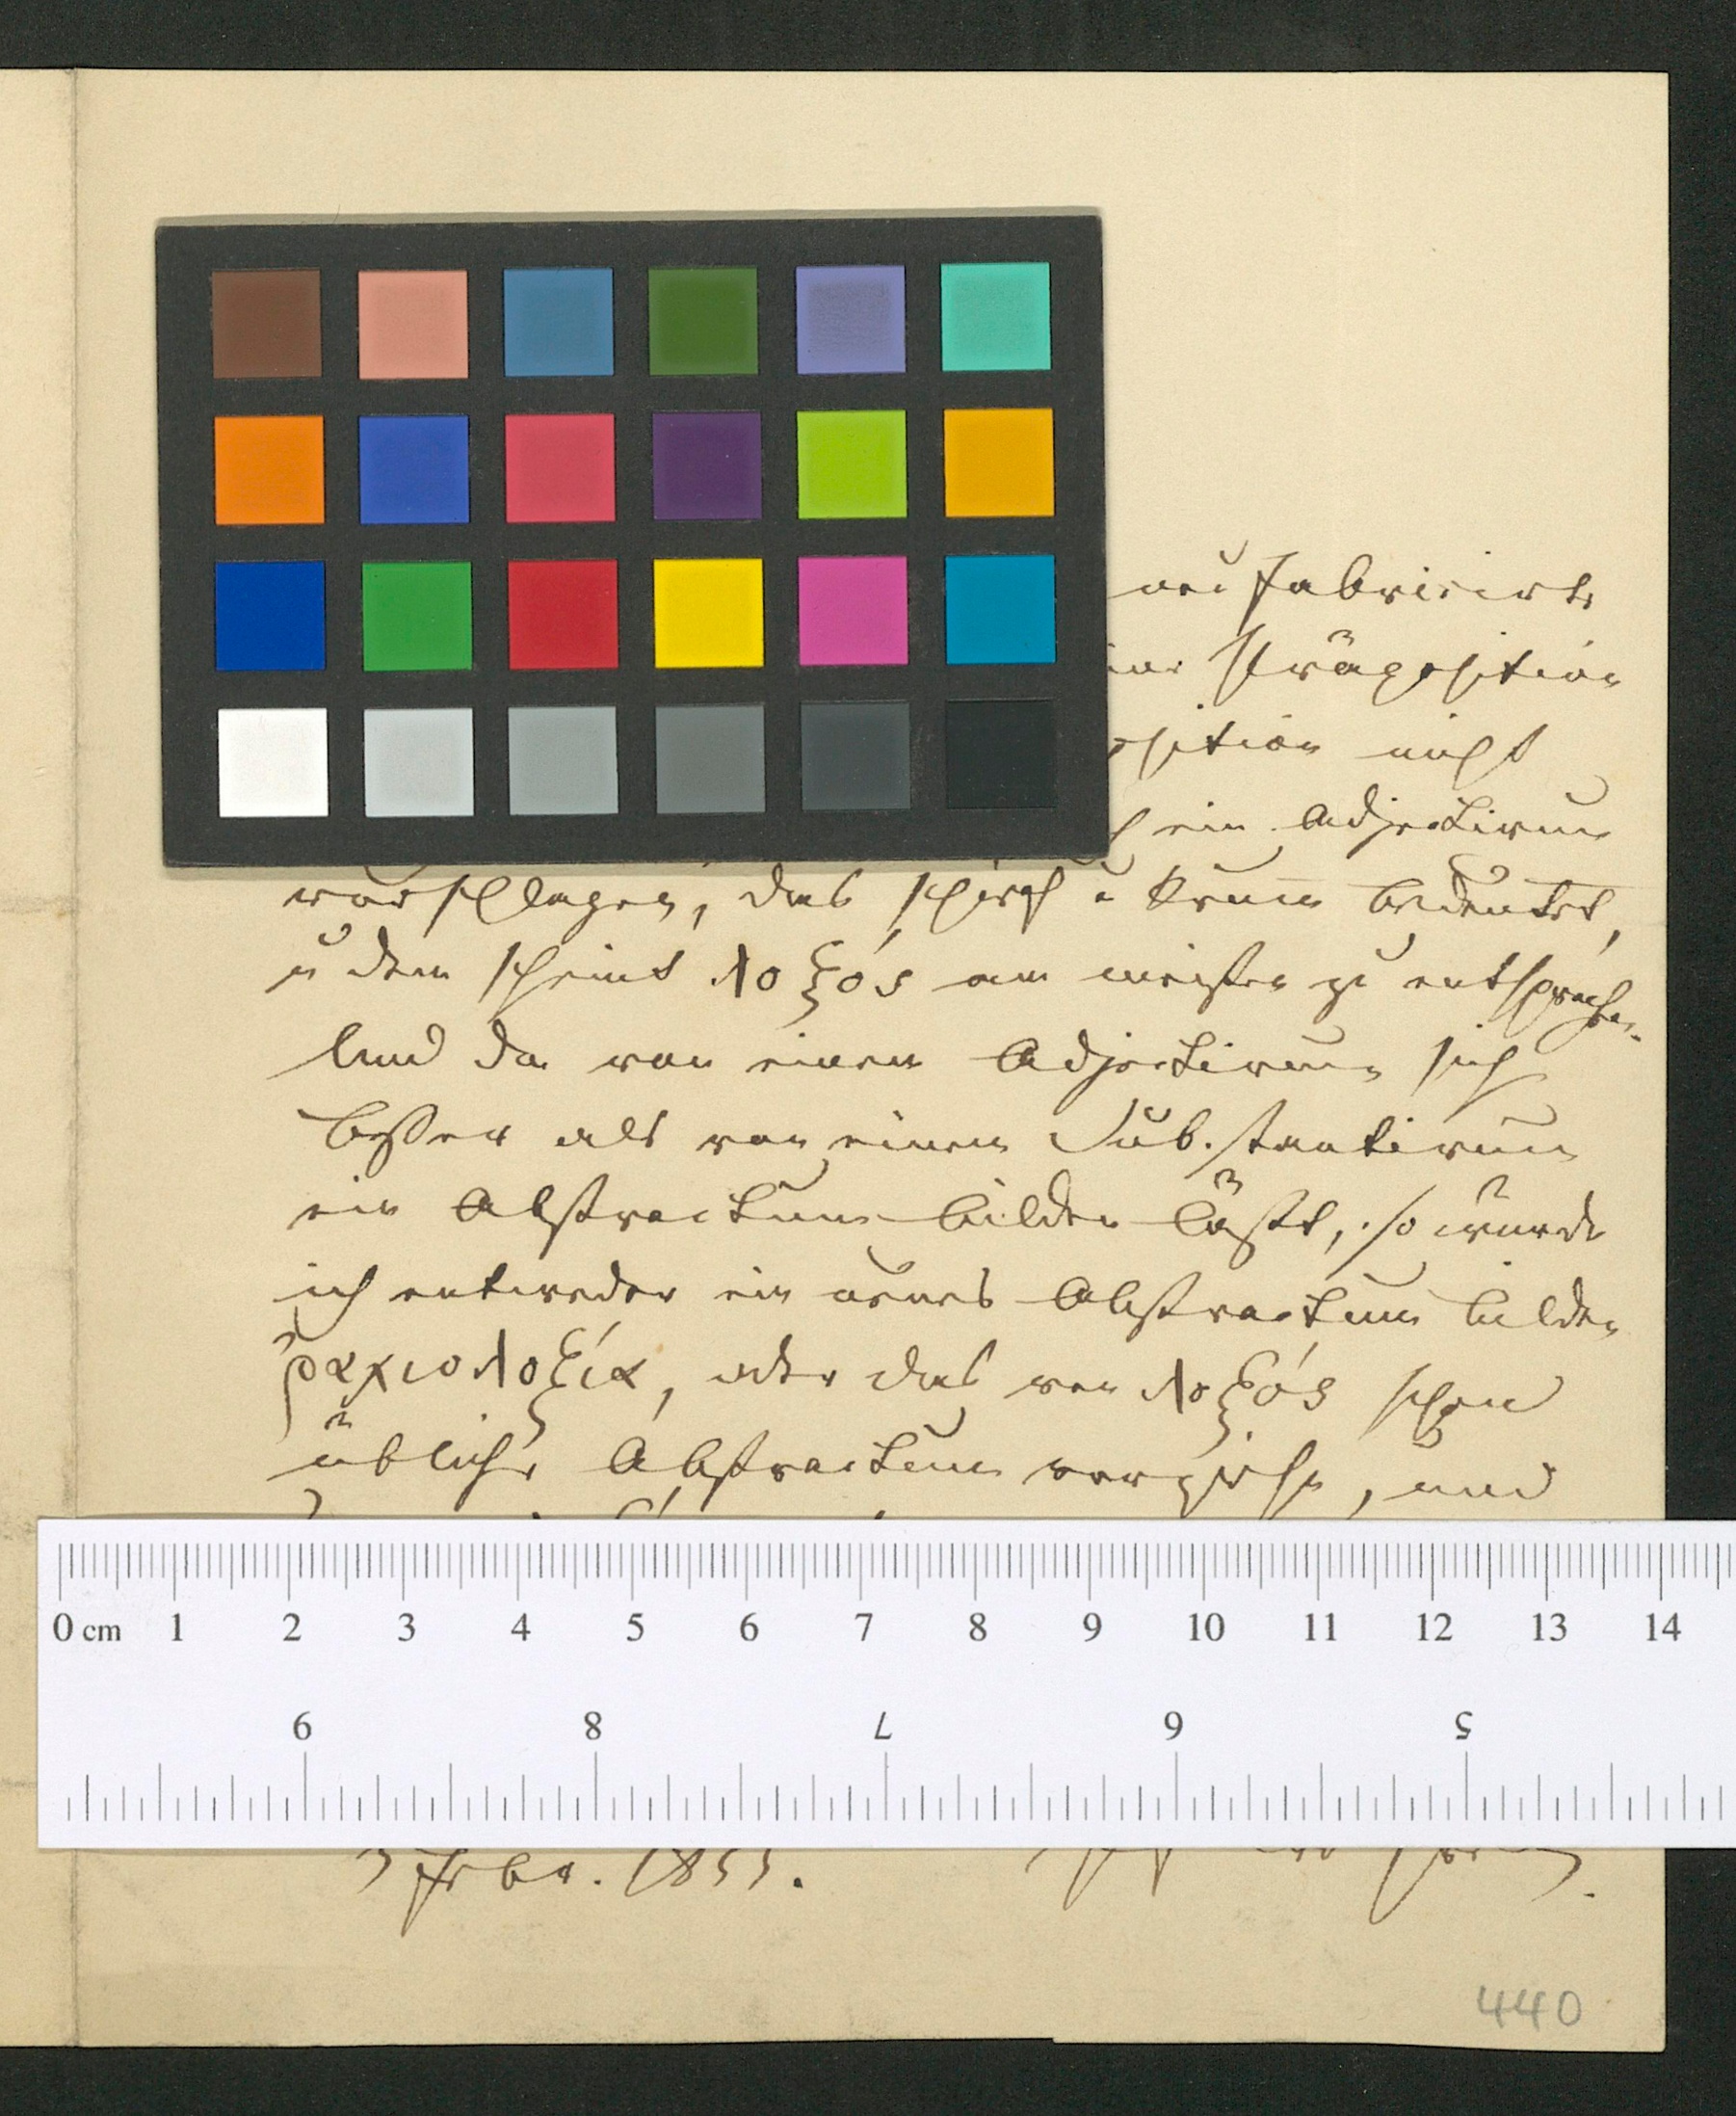 neu fabricirte
Präposition
osition nicht
ein Adjectivum
vorschlagen, das schief u krum̅ bedeutet,
u dem scheint λοξός am meisten zu entsprechen.
Und da von einem Adjectivum sich
besser als von einem Substantivum
ein Abstractum bilden läßt, so würde
ich entweder ein neues Abstractum bilden
ῥαχιολοξία, oder das von λοξός schon
übliche Abstractum vorziehe, und
0 cm 1 2 3 4 5 6 7 8 9 10 11 12 13 14
9 8 7 6 5
Febr. 1855.
440